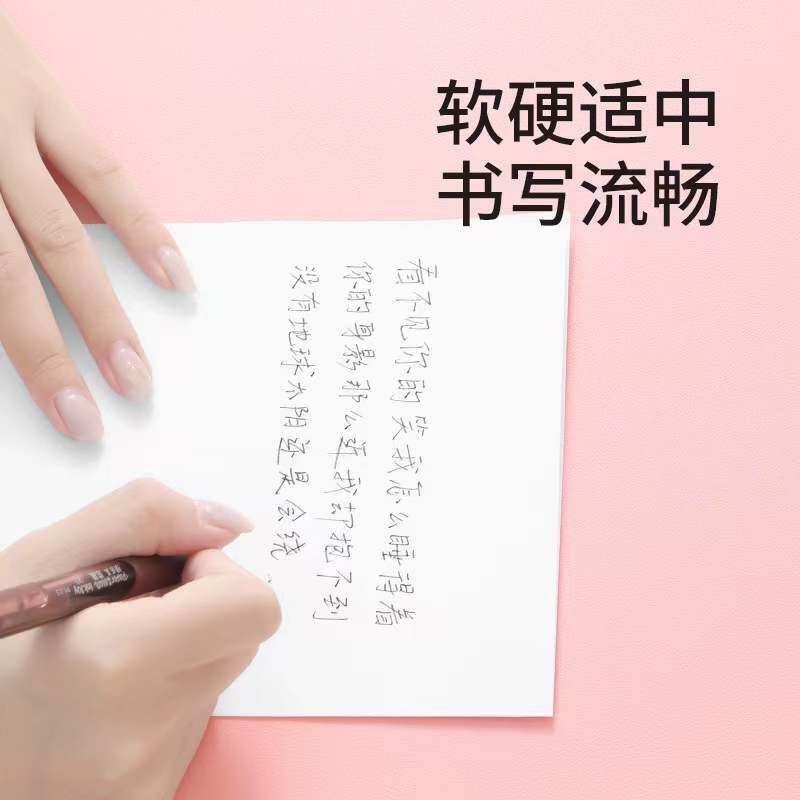 软硬适中
书写流畅
看不见你的笑我怎么睡得着
你的身影那么近我却抱不到
没有地球太阳还是会绕